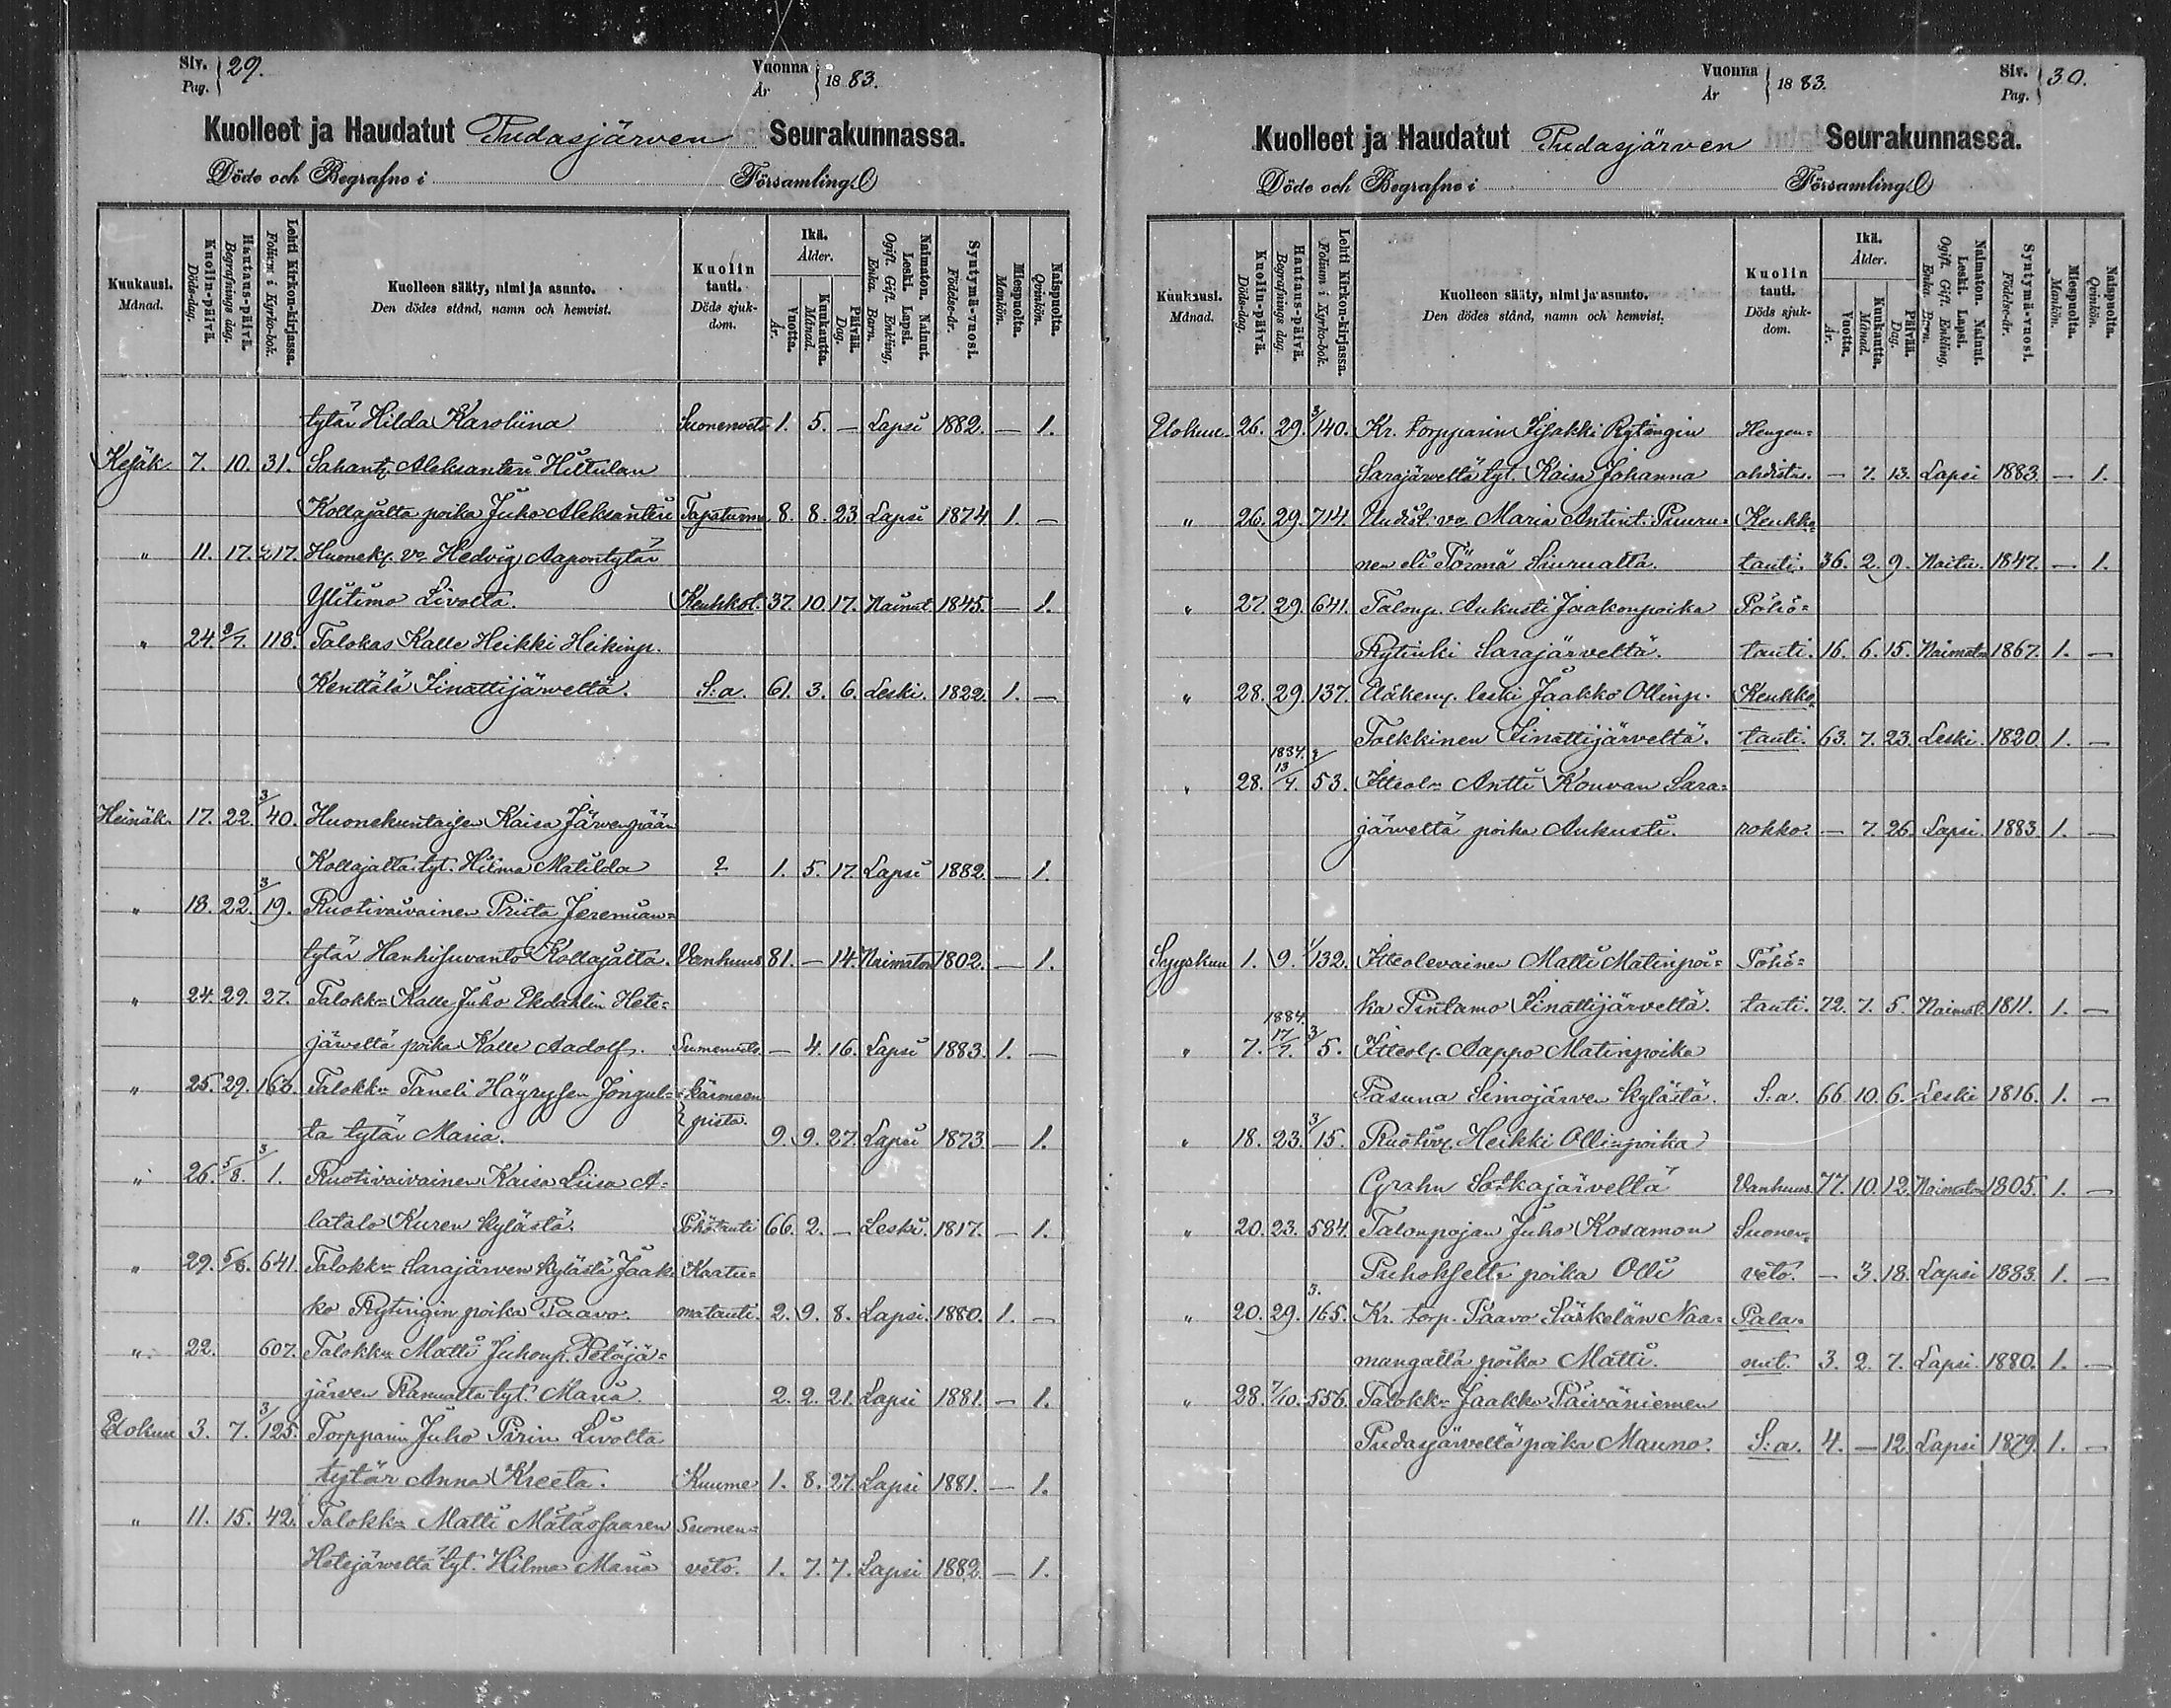 Siv. 29.
Pag.
Vuonna 1883.
År
Kuolleet ja Haudatut Pudasjärven Seurakunnassa.
Döde och Begrafne i Församling.
Kuukausi. Månad. Kuolin-päivä. Döds-dag. Hautaus-päivä. Begrafnings dag. Lehti Kirkon-kirjassa. Folium i Kyrko-bok. Kuolleen sääty, nimi ja asunto. Den dödes stånd, namn och hemvist. Kuolin tauti. Döds sjukdom. Ikä. Ålder. Vuotta. År. Kuukautta. Månad. Päivää. Dag. Naimaton. Nainut. Leski. Lapsi. Ogift. Gift. Enkling. Enka. Barn. Syntymä-vuosi. Födelse-år. Miespuolta. Mankön. Naispuolta. Qvinkön.
tytär Hilda Karoliina Suonenveto 1. 5. — Lapsi 1882. — 1.
Kesäk. 7. 10. 31. Sahant. Aleksanteri Hiltulan
Kollajalta poika Juho Aleksanteri Tapaturma 8. 8. 23 Lapsi 1874 1. —
" 11. 17. 217. Huonek. vo Hedvig Aapontytär
Ylitimo Livolta. Keuhkot. 37. 10. 17. Nainut 1845. — 1.
" 24. 8/7. 118. Talokas Kalle Heikki Heikinp.
Kenttälä Iinattijärveltä. S:a. 61. 3. 6. Leski. 1822. 1. —
Heinäk. 17. 22. 3/40. Huonekuntaisen Kaisa Järvenpään
Kollajalta tyt. Hilma Matilda ? 1. 5. 17. Lapsi 1882. — 1.
" 18. 22. 3/19. Ruotivaivainen Priita Jeremian=
tytär Hanhisuvanto Kollajalta. Vanhuus 81. — 14. Naimaton 1802. — 1.
" 24. 29. 27. Talokk. Kalle Juho Ekdahlin Hete=
järveltä poika Kalle Aadolf. Suonenveto — 4. 16. Lapsi 1883. 1. —
" 25. 29. 160. Talokk. Taneli Häyrysen Jongul= kärmeen
ta tytär Maria. pisto. 9. 9. 27. Lapsi 1873. — 1.
" 26. 5/8. 3/1. Ruotivaivainen Kaisa Liisa A=
latalo Kuren kylästä. Pöhötauti 66. 2. — Leski. 1817. — 1.
" 29. 5/8. 641. Talokk. Sarajärven kylästä Jaak Kaatu=
ko Rytingin poika Paavo. matauti. 2. 9. 8. Lapsi. 1880. 1. —
" 22. 607. Talokk. Matti Juhonp. Petäjä=
järven Ranualta tyt. Maria. 2. 2. 21. Lapsi 1881. — 1.
Elokuu 3. 7. 3/125. Torpparin Juho Pirin Livolta
tytär Anna Kreeta. Kuume 1. 8. 27. Lapsi 1881. — 1.
" 11. 15. 42. Talokk. Matti Mätässaaren Suonen=
Hetejärveltä tyt. Hilma Maria veto. 1. 7. 7. Lapsi 1882. — 1.
Vuonna 1883.
År
Siv. 30.
Pag.
Kuolleet ja Haudatut Pudasjärven Seurakunnassa.
Döde och Begrafne i Församling.
Kuukausi. Månad. Kuolin-päivä. Döds-dag. Hautaus-päivä. Begrafnings dag. Lehti Kirkon-kirjassa. Folium i Kyrko-bok. Kuolleen sääty, nimi ja asunto. Den dödes stånd, namn och hemvist. Kuolin tauti. Döds sjukdom. Ikä. Ålder. Vuotta. År. Kuukautta. Månad. Päivää. Dag. Naimaton. Nainut. Leski. Lapsi. Ogift. Gift. Enkling, Enka. Barn. Syntymä-vuosi. Födelse-år. Miespuolta. Mankön. Naispuolta. Qvinkön.
Elokuu. 26. 29. 3/140. Kr. torpparin Iisakki Rytingin Hengen=
Sarajärveltä tyt. Kaisa Johanna ahdistus. — 7. 13. Lapsi 1883. — 1.
" 26. 29. 714. Uudist. vo Maria Antint. Puuru= Keuhko
nen eli Törmä Siurualta. tauti. 36. 2. 9. Naitu. 1847. — 1.
" 27. 29. 641. Talonp. Aukusti Jaakonpoika Pöhö=
Rytinki Sarajärveltä. tauti. 16. 6. 15. Naimaton 1867. 1. —
" 28. 29. 137. Eläkem. leski Jaakko Ollinp. Keuhko
Tolkkinen Iinattijärveltä. tauti. 63. 7. 23. Leski. 1820. 1. —
" 28. 1884. 13/4. 3/53. Itteol. Antti Kouvan Sara=
järveltä poika Aukusti. rokko. — 7. 26. Lapsi. 1883. 1. —
Syyskuu 1. 9. 1/132. Itteolevainen Matti Matinpoi= Pöhö=
ka Pintamo Iinattijärveltä. tauti. 72. 7. 5. Naimat. 1811. 1. —
" 7. 1884. 17/7. 3/5. Itteol. Aappo Matinpoika
Pasuna Simojärven kylästä. S:a. 66. 10. 6. Leski 1816. 1. —
" 18. 23. 3/15. Ruotiv. Heikki Ollinpoika
Grahn Sotkajärveltä Vanhuus. 77. 10. 12. Naimaton 1805. 1. —
" 20. 23. 584. Talonpojan Juho Kosamon Suonen=
Puhokselta poika Olli veto. — 3. 18. Lapsi 1883. 1. —
" 20. 29. 3. 165. Kr. torp. Paavo Särkelän Naa= Pala=
mangalta poika Matti. nut. 3. 2. 7. Lapsi. 1880. 1. —
" 28. 7/10. 556. Talokk. Jaakko Päiväniemen
Pudasjärveltä poika Mauno. S:a. 4. — 12. Lapsi 1879. 1. —